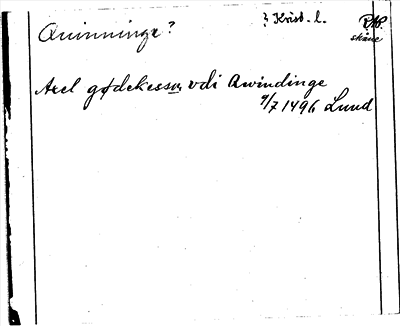 Quinninge? } Krist. l. RAP.
skåne
Axel gødekessøn vdi Qwindinge
9/7 1496 Lund